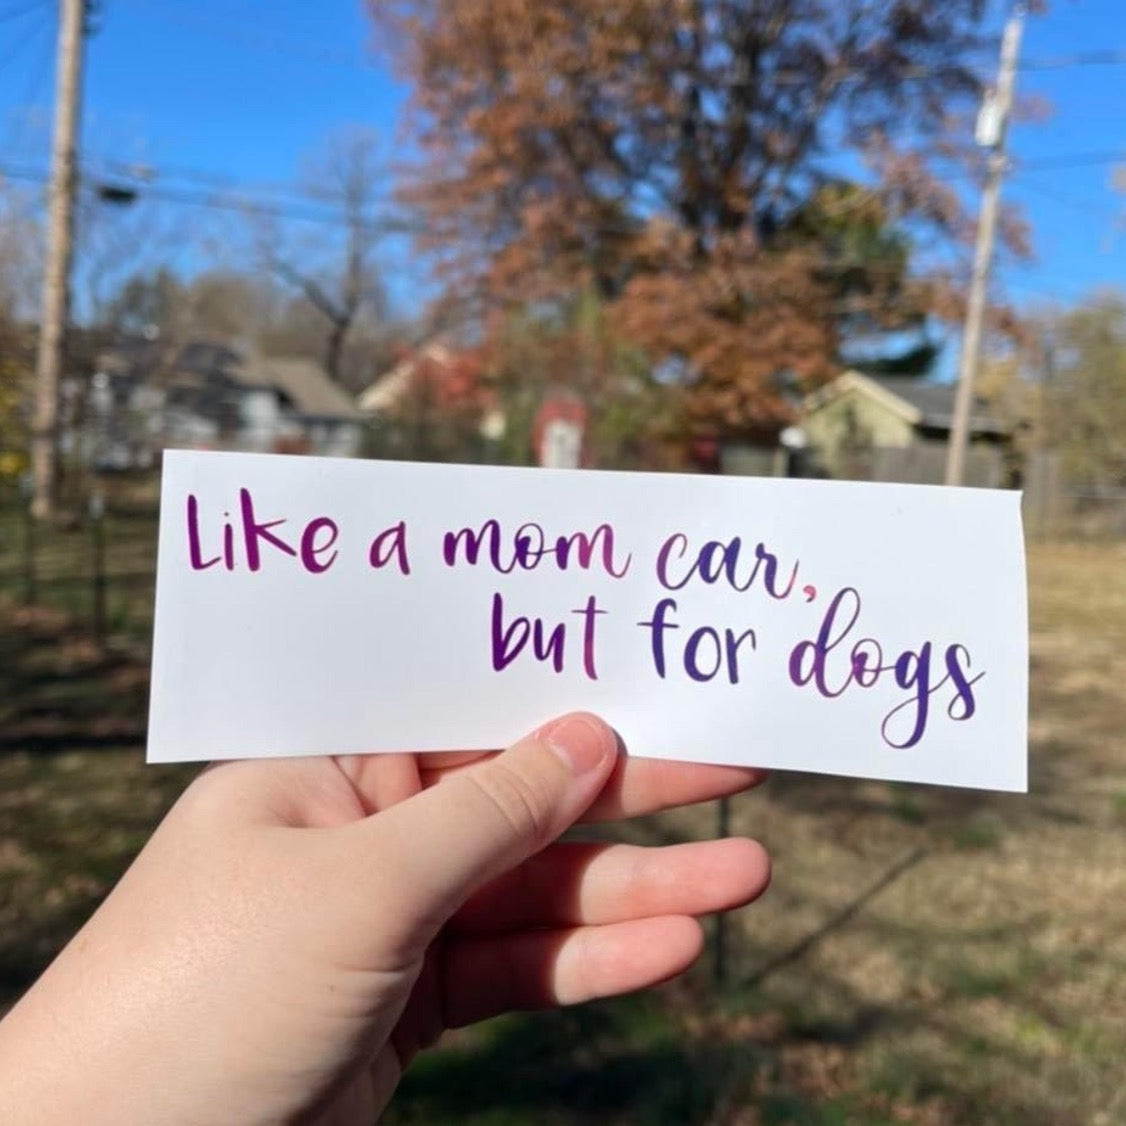 Like a mom car,
but for dogs